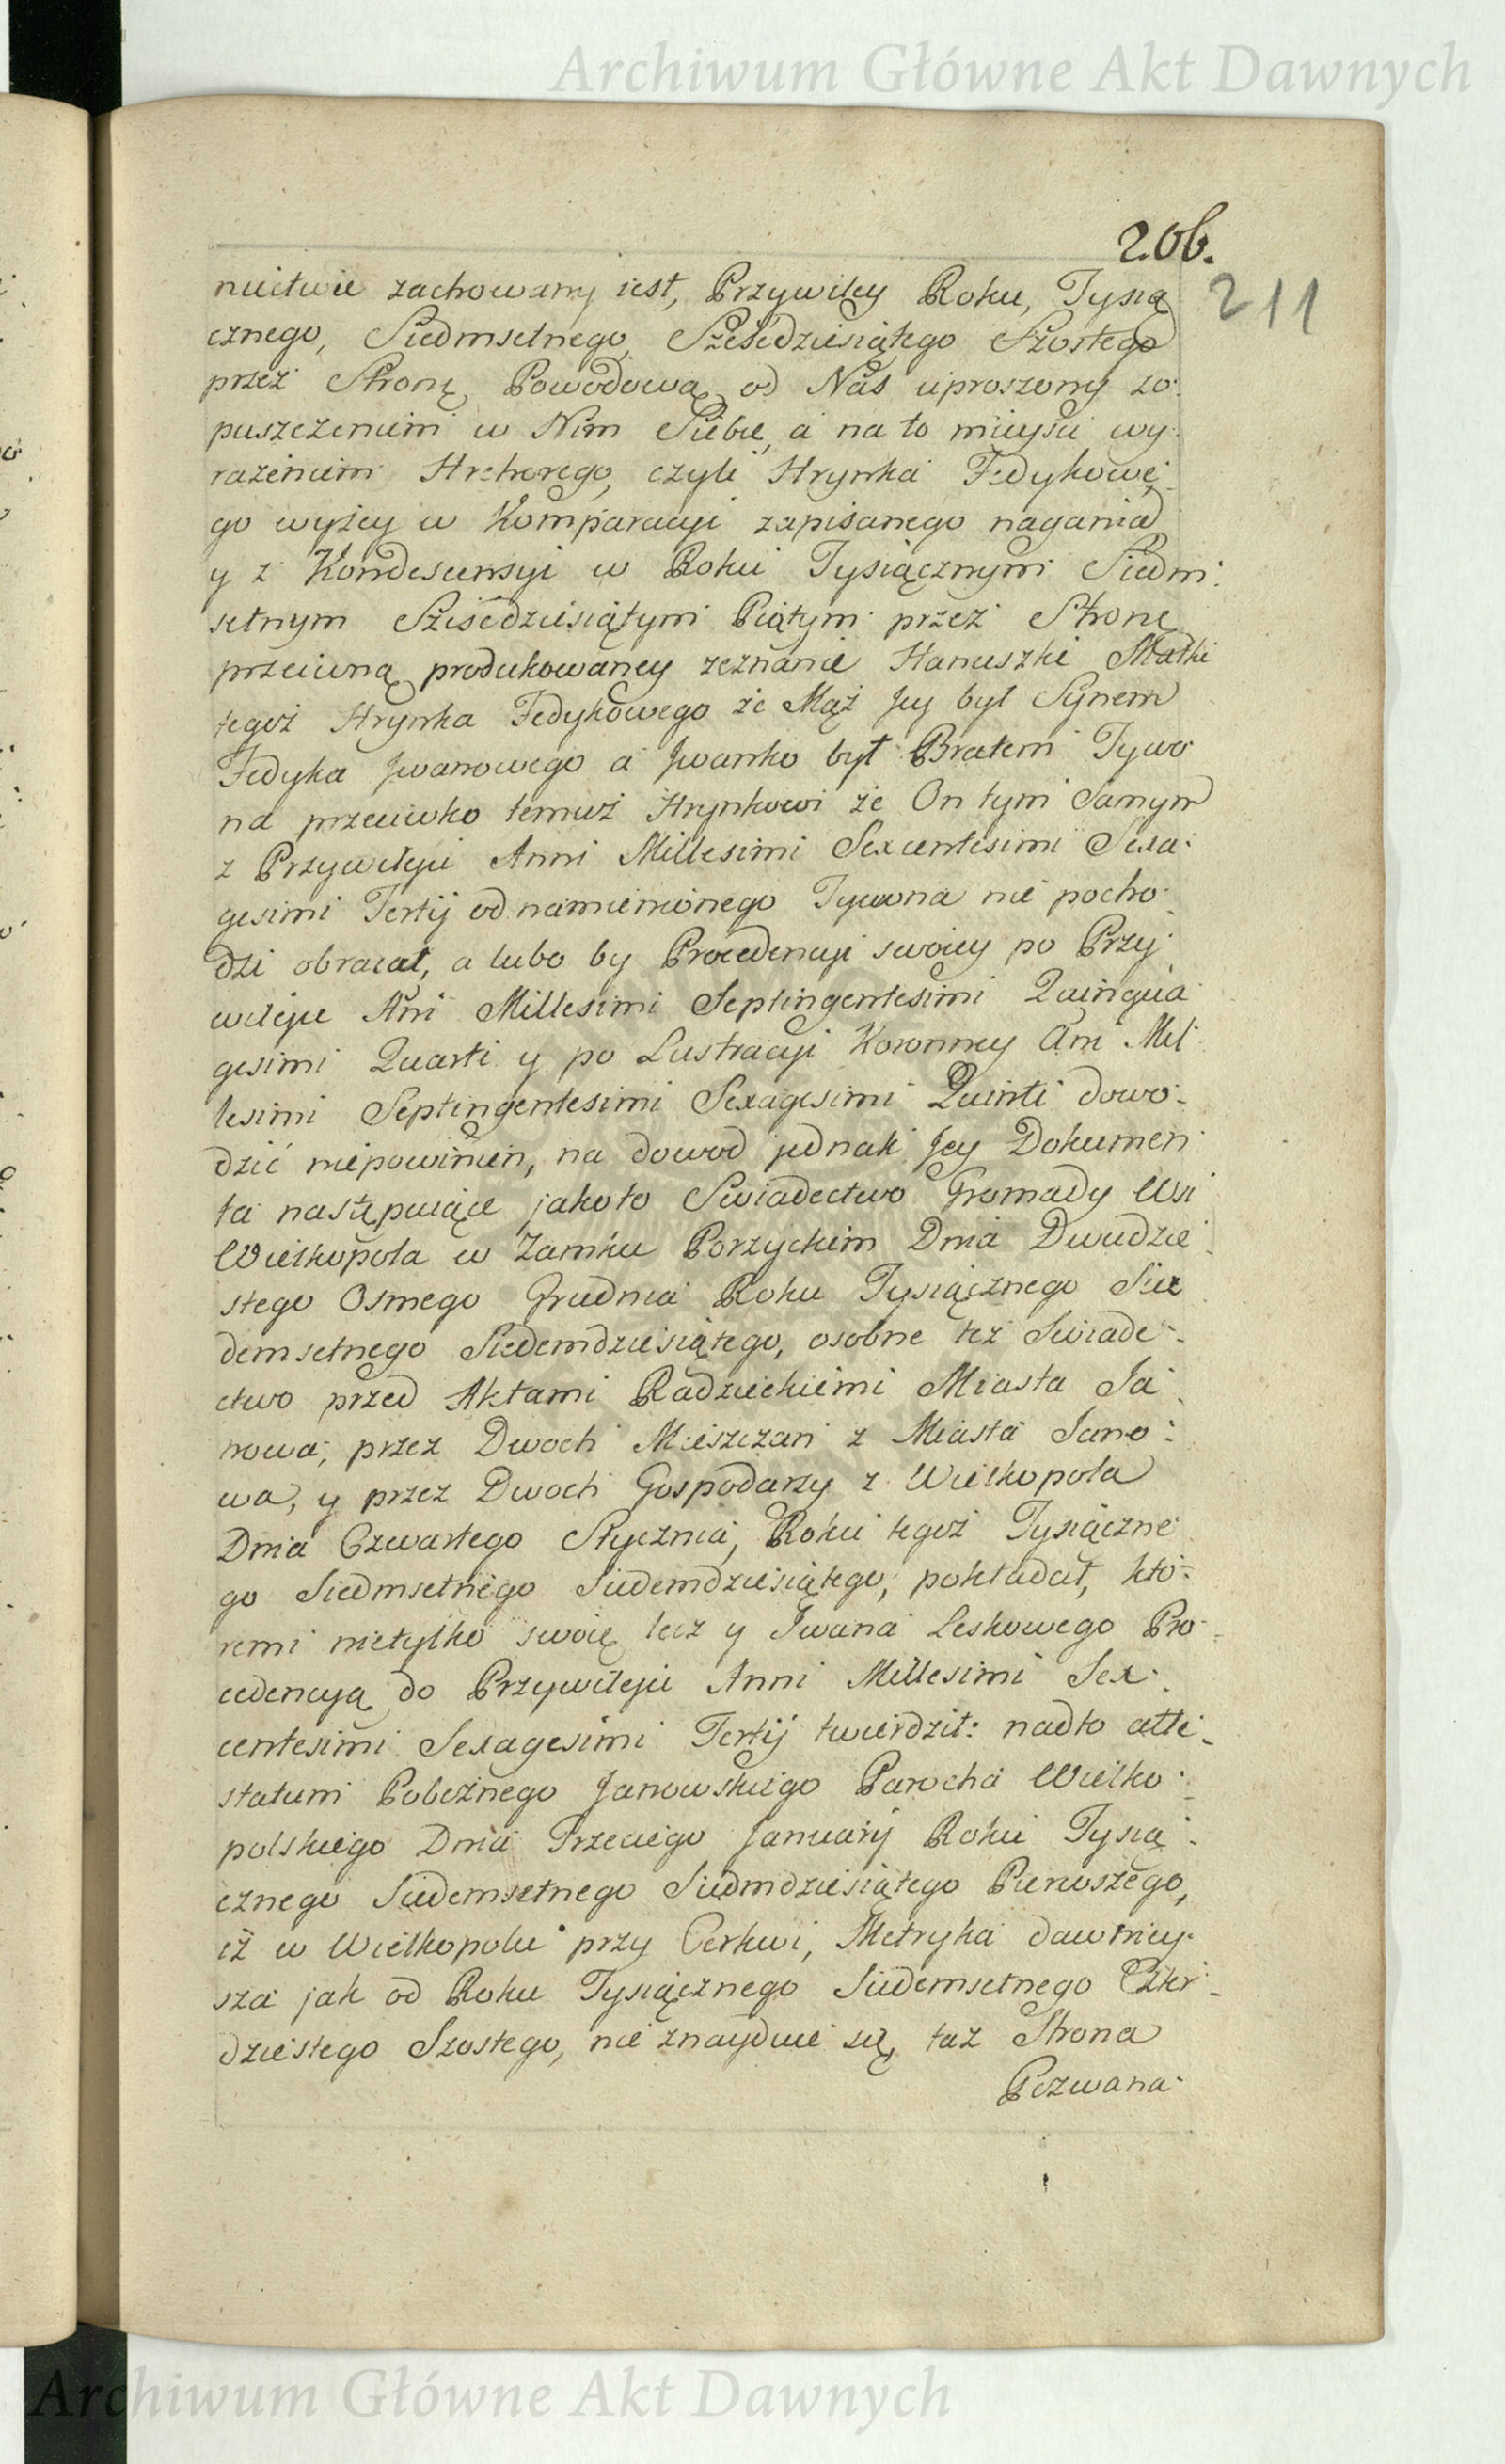 Archiwum Główne Akt Dawnych
206.
211
nictwie zachowany iest, Przywiley Roku, Tysią
cznego, Siedmsetnego, Sześcdziesiątego Szostego
przez Stronę Powodową od Nas uproszony zo.
puszczeniem w Nim Siebie, a na to mieysce wy.
rażeniem Hrehorego, czyli Hryńka Fedykowe.
go wyżey w Komparacyi zapisanego naganiał
y z Kondescensyi w Roku Tysiącznym Siedm.
setnym Sześcdziesiątym Piątym przez Stronę
przeciwną produkowaney zeznanie Hanuszki Matki
tegoż Hryńka Fedykowego że Mąż Jey był Synem
Fedyka Jwanowego a Jwanko był Bratem Tywo
na przeciwko temuż Hryńkowi że On tym samym
z Przywileju Anni Millesimi Sexcentesimi Sexa:
gesimi Tertij od namienionego Tywona nie pocho.
dzi obracał, a lubo by Procedencyi swoiey po Przy.
wileju Ańi Millesimi Septingentesimi Quinqua
gesimi Quarti y po Lustracyi Koronney Ańi Mil
lesimi Septingentesimi Sexagesimi Quinti dowo-
dzić niepowinien, na dowod jednak Jey Dokumen
ta następuiące jakoto Swiadectwo Gromady Wsi
Wielkopola w Zamku Porzyckim Dnia Dwudzie.
stego Osmego Grudnia Roku Tysiącznego Sie
demsetnego Siedemdziesiątego, osobne też Swiade-
ctwo przed Aktami Radzieckiemi Miasta Ja
nowa, przez Dwoch Mieszczan z Miasta Jano:
wa, y przez Dwoch Gospodarzy z Wielkopola
Dnia Czwartego Stycznia, Roku tegoż Tysiączne
go Siedmsetnego Siedemdziesiątego, pokładał, kto-
remi nietylko swoię lecz y Jwana Leskowego Pro-
cedencyą do Przywileju Anni Millesimi Sex.
centesimi Sexagesimi Tertij twierdził: nadto atte-
statum Pobożnego Janowskiego Parocha Wielko.
polskiego Dnia Trzeciego Januarij Roku Tysią.
cznego Siedemsetnego Siedmdziesiątego Pierwszego,
iż w Wielkopolu przy Cerkwi, Metryka dawniey.
sza jak od Roku Tysiącznego Siedemsetnego Czter-
dziestego Szostego, nie znayduie się, taż Strona
Pozwana
Archiwum Główne Akt Dawnych